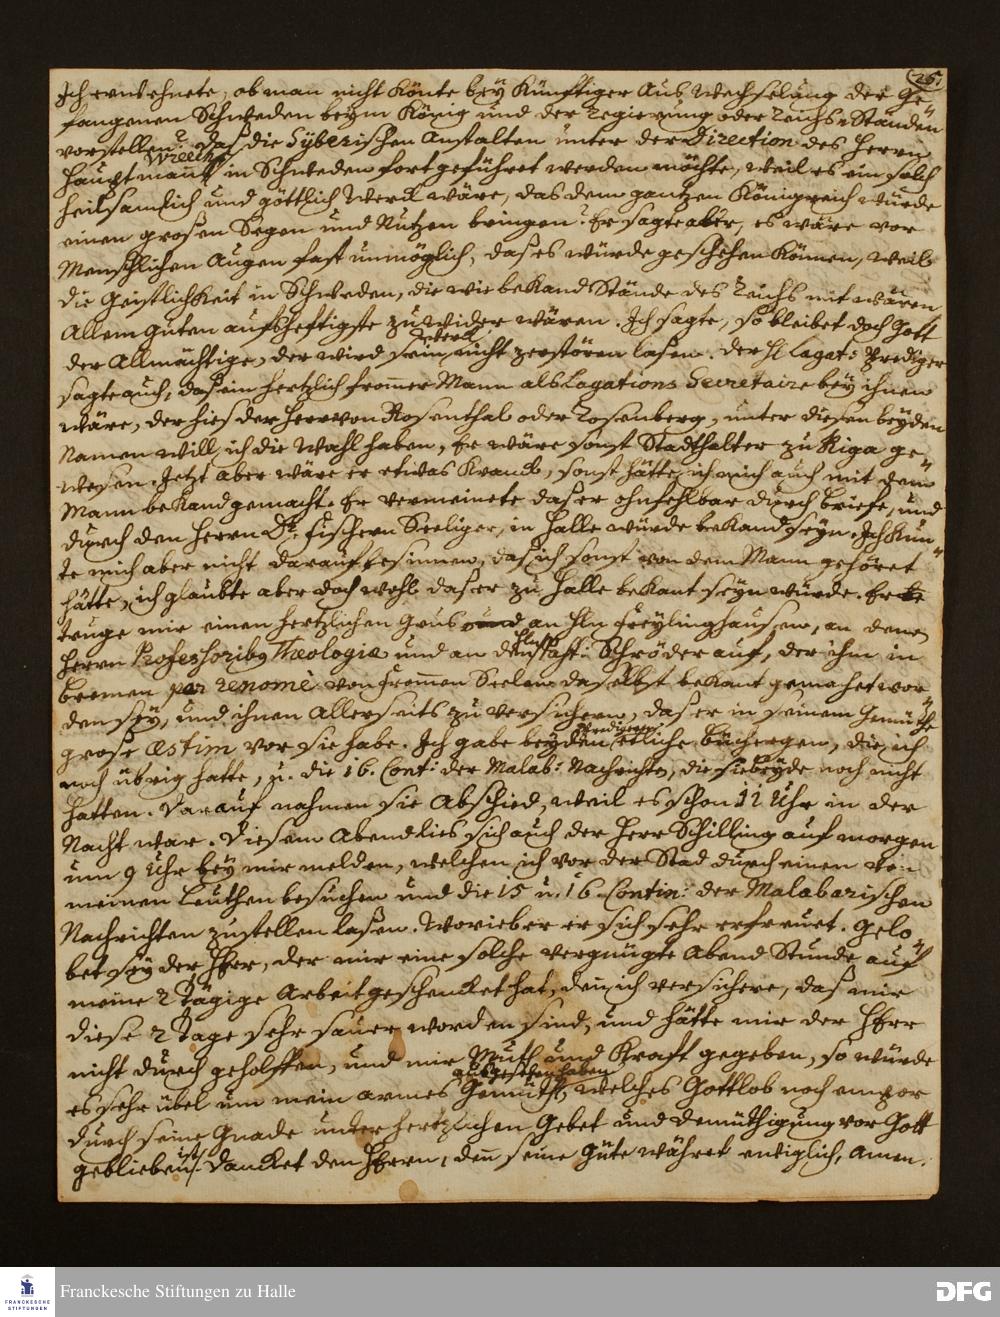 (25.)
Ich erwehnete, ob man nicht könte bey künfftiger Aus Wechselung der Ge=
fangenen Schweden beym König und der Regierung oder Reichs Ständen
vorstellen? daß die Syberischen Anstalten unter der Direction des Herrn
Hauptmann Wreech in Schweden fortgeführet werden möchte, weil es ein solch
heilsamlich und göttlich Werck wäre, das dem gantzen Königreich würde
einen großen Segen und Nutzen bringen? Er sagte aber, es wäre vor
Menschlichen Augen fast unmöglich, daß es würde geschehen können, weil
die Geistlichkeit in Schweden, die wie bekand Stände des Reichs mit wären
Allem guten aufs hefftigste zu wider wären. Ich sagte, so bleibet doch Gott
der Allmächtige, der wird sein Werck nicht zerstören laßen. der H Legat: Prediger
sagte auch, daß ein hertzlich frommer Mann als Legations Secretaire bey ihnen
wäre, der hies der Herr von Rosenthal oder Rosenberg, unter diesen beyden
Namen will ich die Wahl haben, Er wäre sonst Stadthalter zu Riga ge=
wesen. Jetzt aber wäre er etwas kranck, sonst hätte ich mich auch mit dem
Mann bekand gemacht. Er vermeinete daß er ohnfehlbar durch briefe, und
durch den Herrn Dr. Fischern Seeliger, in Halle würde bekand seyn. Ich kun=
te mich aber nicht darauf besinnen, daß ich sonst von dem Mann gehöret
hätte, ich glaubte aber doch wohl daß er zu Halle bekant seyn würde. Er
truge mir einen hertzlichen Grus an Hln Freylinghausen, an denen
Herrn Professoribus Theologiæ und an den Hln Past: Schröder auf, der ihm in
Bremen par renomè von frommen Seelen daselbst bekant gemachet wor=
den sey, und ihnen allerseits zu versichern, daß er in seinem Gemüthe
große æstim vor sie habe. Ich gabe beyden Predigern etliche büchergen, die ich
noch übrig hatte, u. die 16. Cont: der Malab: Nachrichten, die sie beyde noch nicht
hatten. Darauf nahmen sie Abschied, weil es schon 11 Uhr in der
Nacht war. Diesen Abend lies sich auch der Herr Schilling auf morgen
um 9 Uhr bey mir melden, welchen ich vor der Stad durch einen von
meinen Leuthen besuchen und die 15 u. 16. Contin: der Malabarischen
Nachrichten zustellen laßen. Worieber er sich sehr erfreuet. Gelo=
bet sey der HErr, der mir eine solche vergnügte Abend Stunde auf
meine 2 Tägige Arbeit geschencket hat, den ich versichere, daß mir
diese 2 Tage sehr sauer worden sind, und hätte mir der HErr
nicht durch geholffen, und mir Muth und Krafft gegeben, so würde
es sehr übel um mein armes Gemüth ausgesehen haben, welches Gottlob noch empor
durch seine Gnade unter hertzlichen Gebet und Demüthigung vor Gott
geblieben ist. Dancket dem HErrn, den seine Güte währet ewiglich, Amen.
Franckesche Stiftungen zu Halle
FRANCKESCHE
STIFTUNGEN
DFG